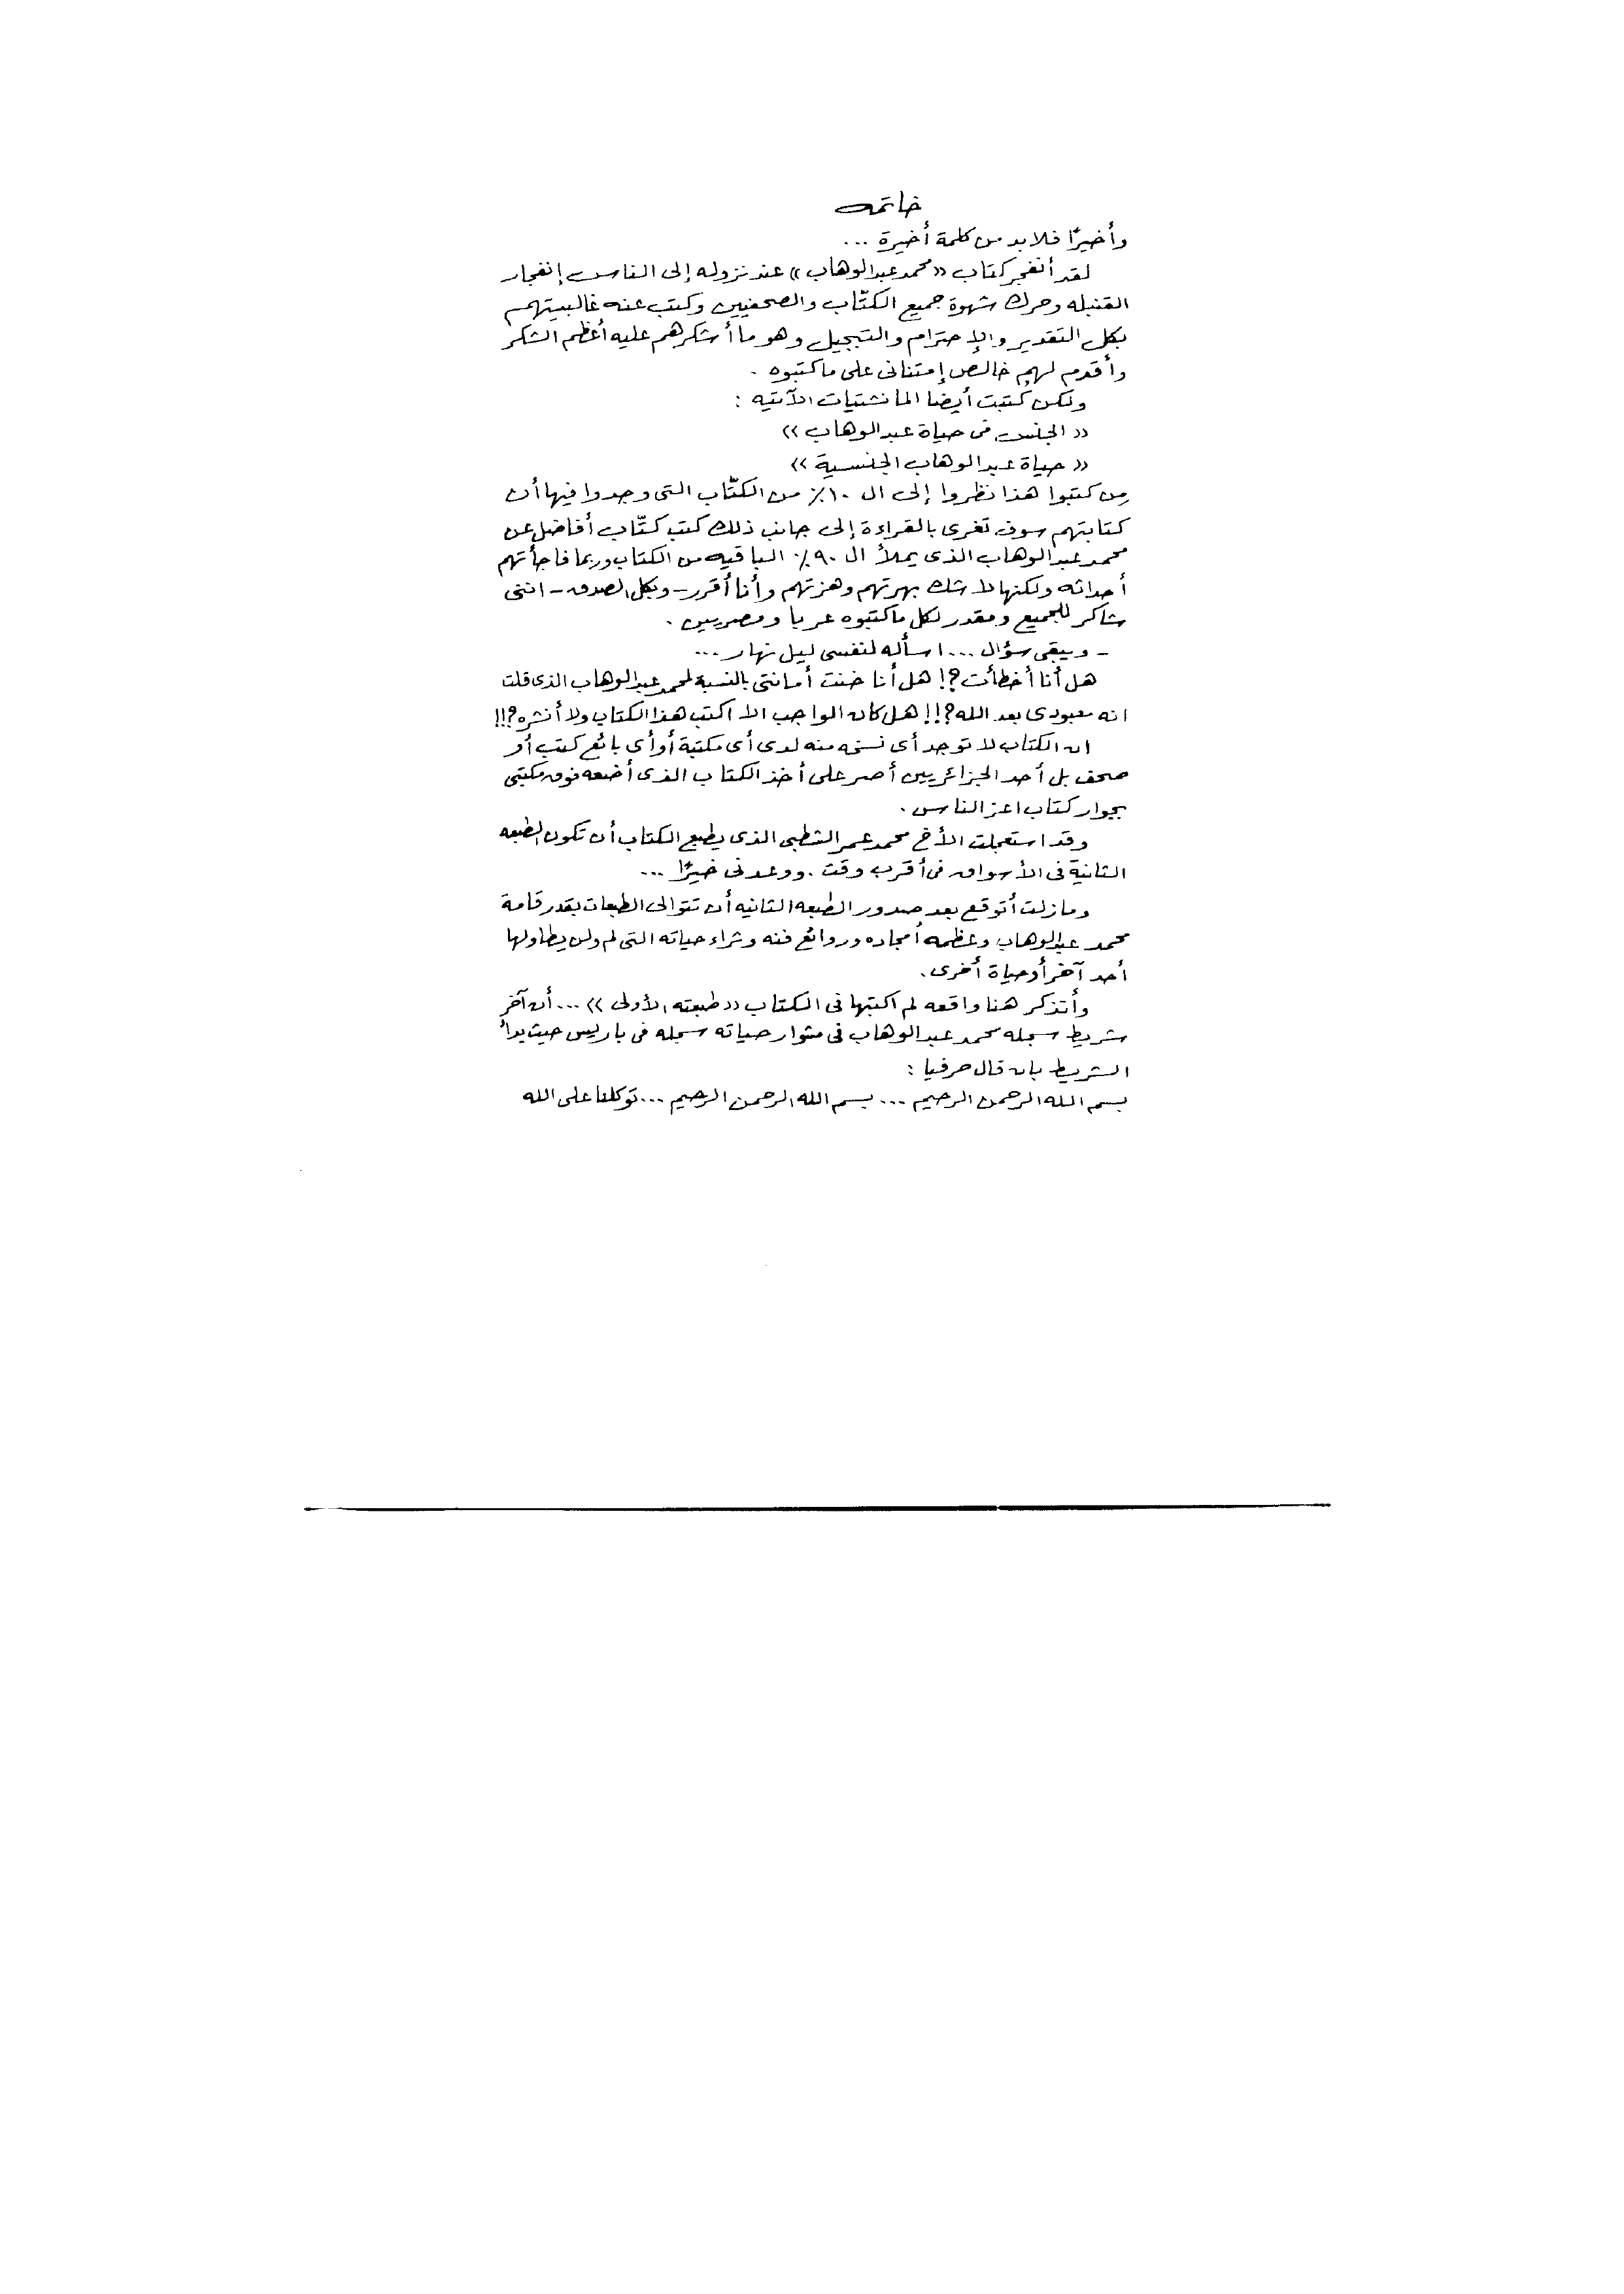 خاتمه
وأخيرًا فلابد من كلمة أخيرة ...
لقد أنفجر كتاب «محمد عبدالوهاب» عند نزوله إلى الناس إنفجار
القنبله وحرك شهوة جميع الكتّاب والصحفيين وكتب عنه غالبيتهم
بكل التقدير والإحترام والتبجيل وهو ما أشكرهم عليه أعظم الشكر
وأقدم لهم خالص إمتنانى على ماكتبوه .
ولكن كتبت أيضا المانشتيات الآتيه :
«الجنس فى حياة عبدالوهاب»
«حياة عبدالوهاب الجنسية»
من كتبوا هذا نظروا إلى ال ١٠٪ من الكتّاب التى وجدوا فيها أن
كتابتهم سوف تغرى بالقراءة إلى جانب ذلك كتب كتّاب أفاضل عن
محمد عبدالوهاب الذى يملأ ال ٩٠٪ الباقيه من الكتاب وربما فاجأتهم
أحداثه ولكنها لا شك بهرتهم وهزتهم وأنا أقرر - وبكل الصدق - اننى
شاكر للجميع ومقدر لكل ماكتبوه عربا ومصريين .
- ويبقى سؤال ... اسأله لنفسى ليل نهار ...
هل أنا أخطأت ؟! هل أنا خنت أمانتى بالنسبة لمحمد عبدالوهاب الذى قلت
انه معبودى بعد الله ؟!! هل كان الواجب الا اكتب هذا الكتاب ولا أنشره ؟!!
ان الكتاب لا توجد أى نسخه منه لدى أى مكتبة أو أى بائع كتب أو
صحف بل أحد الجزائريين أصر على أخذ الكتاب الذى أضعه فوق مكتبى
بجوار كتاب اعز الناس .
وقد استعجلت الأخ محمد عمر الشطبى الذى يطبع الكتاب أن تكون الطبعه
الثانية فى الأسواق فى أقرب وقت . ووعدنى خيرًا ...
ومازلت أتوقع بعد صدور الطبعه الثانيه أن تتوالى الطبعات بقدر قامة
محمد عبدالوهاب وعظمه أمجاده وروائع فنه وثراء حياته التى لم ولن يطاولها
أحد آخر أو حياة أخرى .
وأتذكر هنا واقعه لم اكتبها فى الكتاب «طبعته الأولى» ... أن آخر
شريط سجله محمد عبدالوهاب فى مشوار حياته سجله فى باريس حيث بدأ
الشريط بان قال حرفيا :
بسم الله الرحمن الرحيم ... بسم الله الرحمن الرحيم ... توكلنا على الله